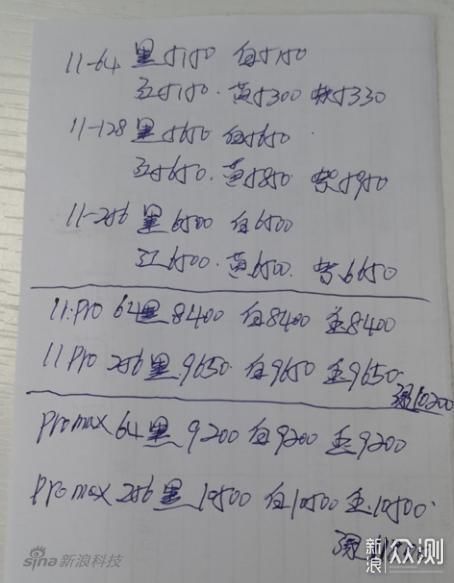 11-64 黑5150 白5150
红5150. 黄5300 紫5330
11-128 黑5650 白5650
红5650. 黄5850 紫5950
11-256 黑6500 白6500
红6500. 黄6500. 紫6650
11.Pro 64黑8400 白8400 金8400
11Pro 256黑.9650. 白9650 金9650.
绿10200
Promax 64黑9200 白9200 金9200
Promax 256黑10500 白10500 金.10500.
绿
sina新浪科技
新浪 众测